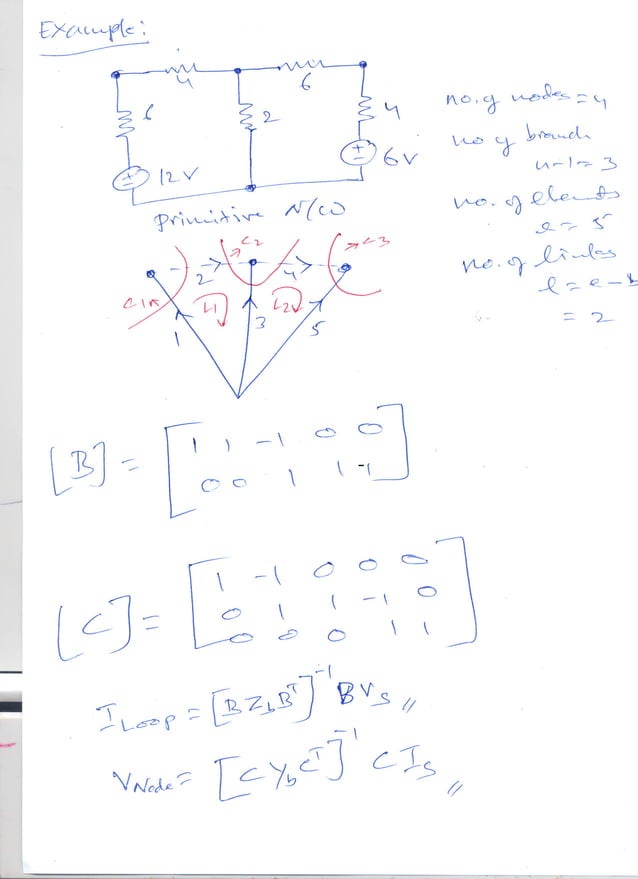 Example:
4
6
6
2
4
12V
6V
Primitive N/W
no. of nodes = 4
no of branch
n-1 = 3
no. of elements
e = 5
no. of links
l = e-b
= 2
C2
C3
2
4
C1
L1
L2
1
3
5
[B] = [1 1 -1 0 0
0 0 1 1 -1]
[C] = [1 -1 0 0 0
0 1 1 -1 0
0 0 0 1 1]
I Loop = [B Z_b B^T]^-1 B V_s //
V Node = [C Y_b C^T]^-1 C I_s //